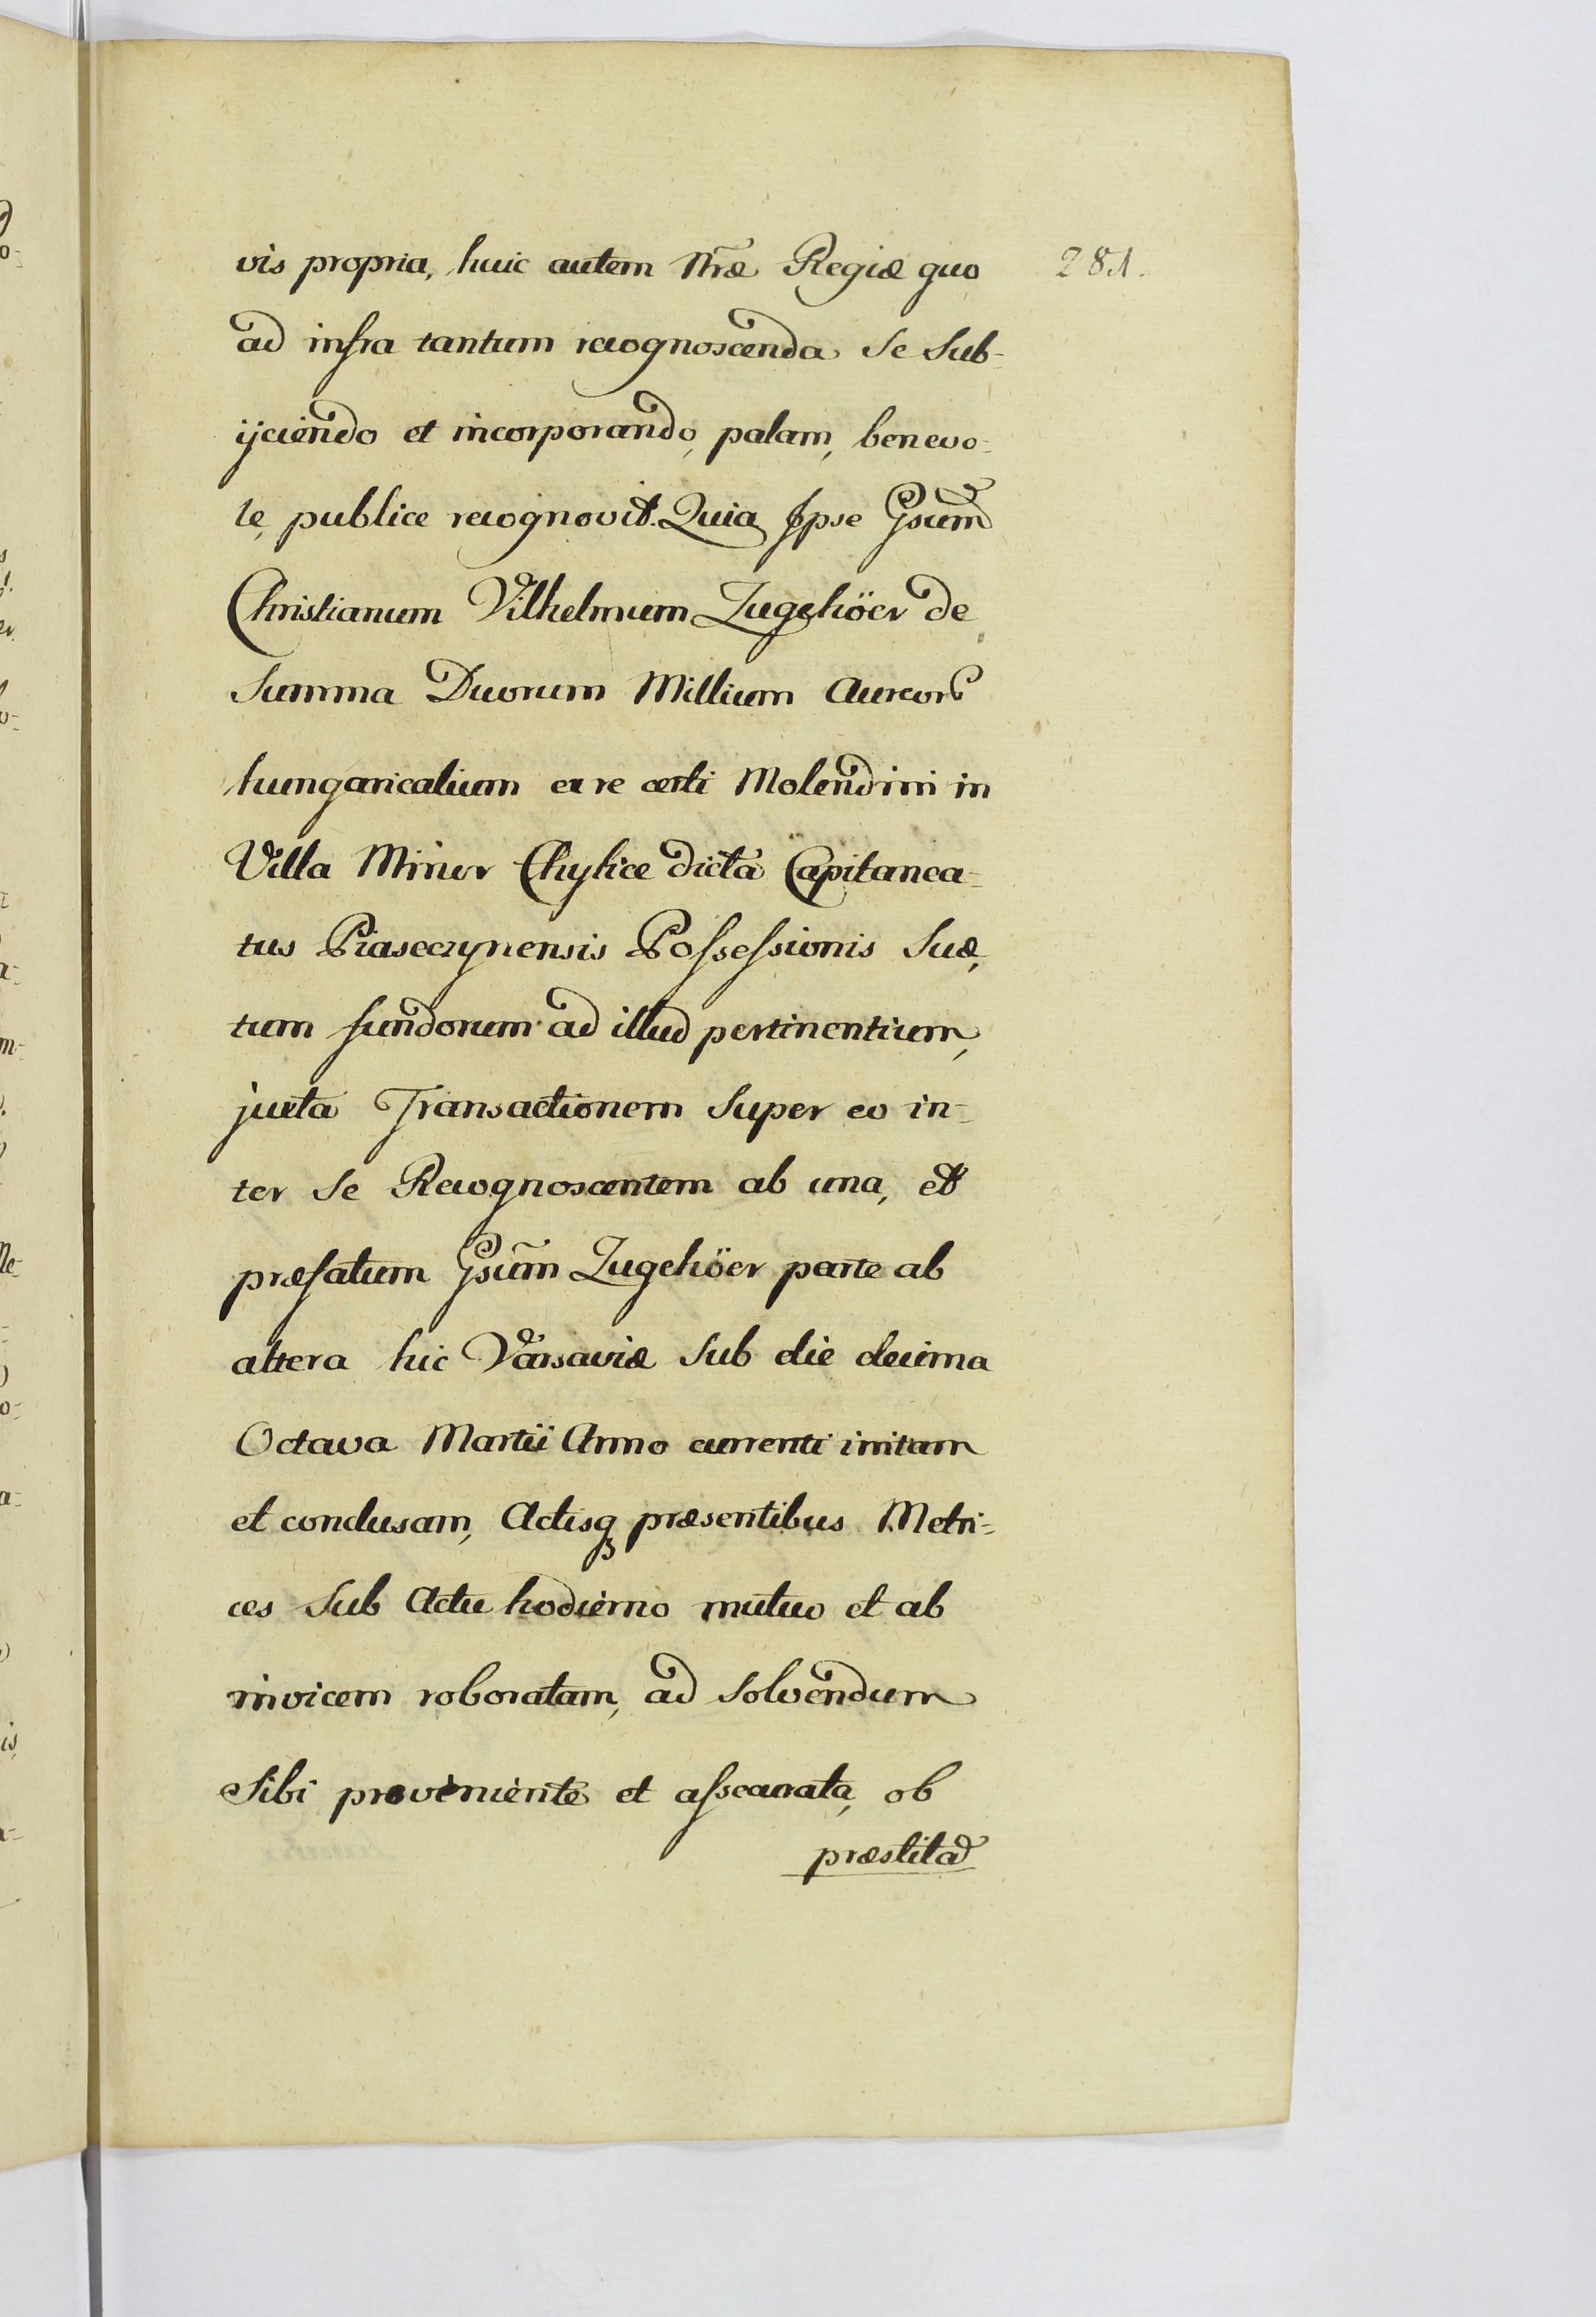 vis propria, huic autem Mræ Regiæ quo
281.
ad infra tantum recognoscenda se sub-
ijciendo et incorporando, palam, benevo-
le, publice recognovit. Quia Ipse Gsum
Christianum Vilhelmum Zugehöer de
Summa Duorum Millium Aureor
hungaricalium ex re certi Molendini in
Villa Minor Chylice dicta Capitanea-
tus Piaseczynensis Possessionis suæ,
tum fundorum ad illud pertinentium,
juxta Transactionem super eo in-
ter se Recognoscentem ab una, et
præfatum Gsum Zugehöer parte ab
altera hic Varsaviæ sub die decima
Octava Martii Anno currenti initam
et conclusam, Actisq præsentibus Metri-
ces sub Actu hodierno mutuo et ab
invicem roboratam, ad solvendum
sibi proveniente et assecurata, ob
præstita